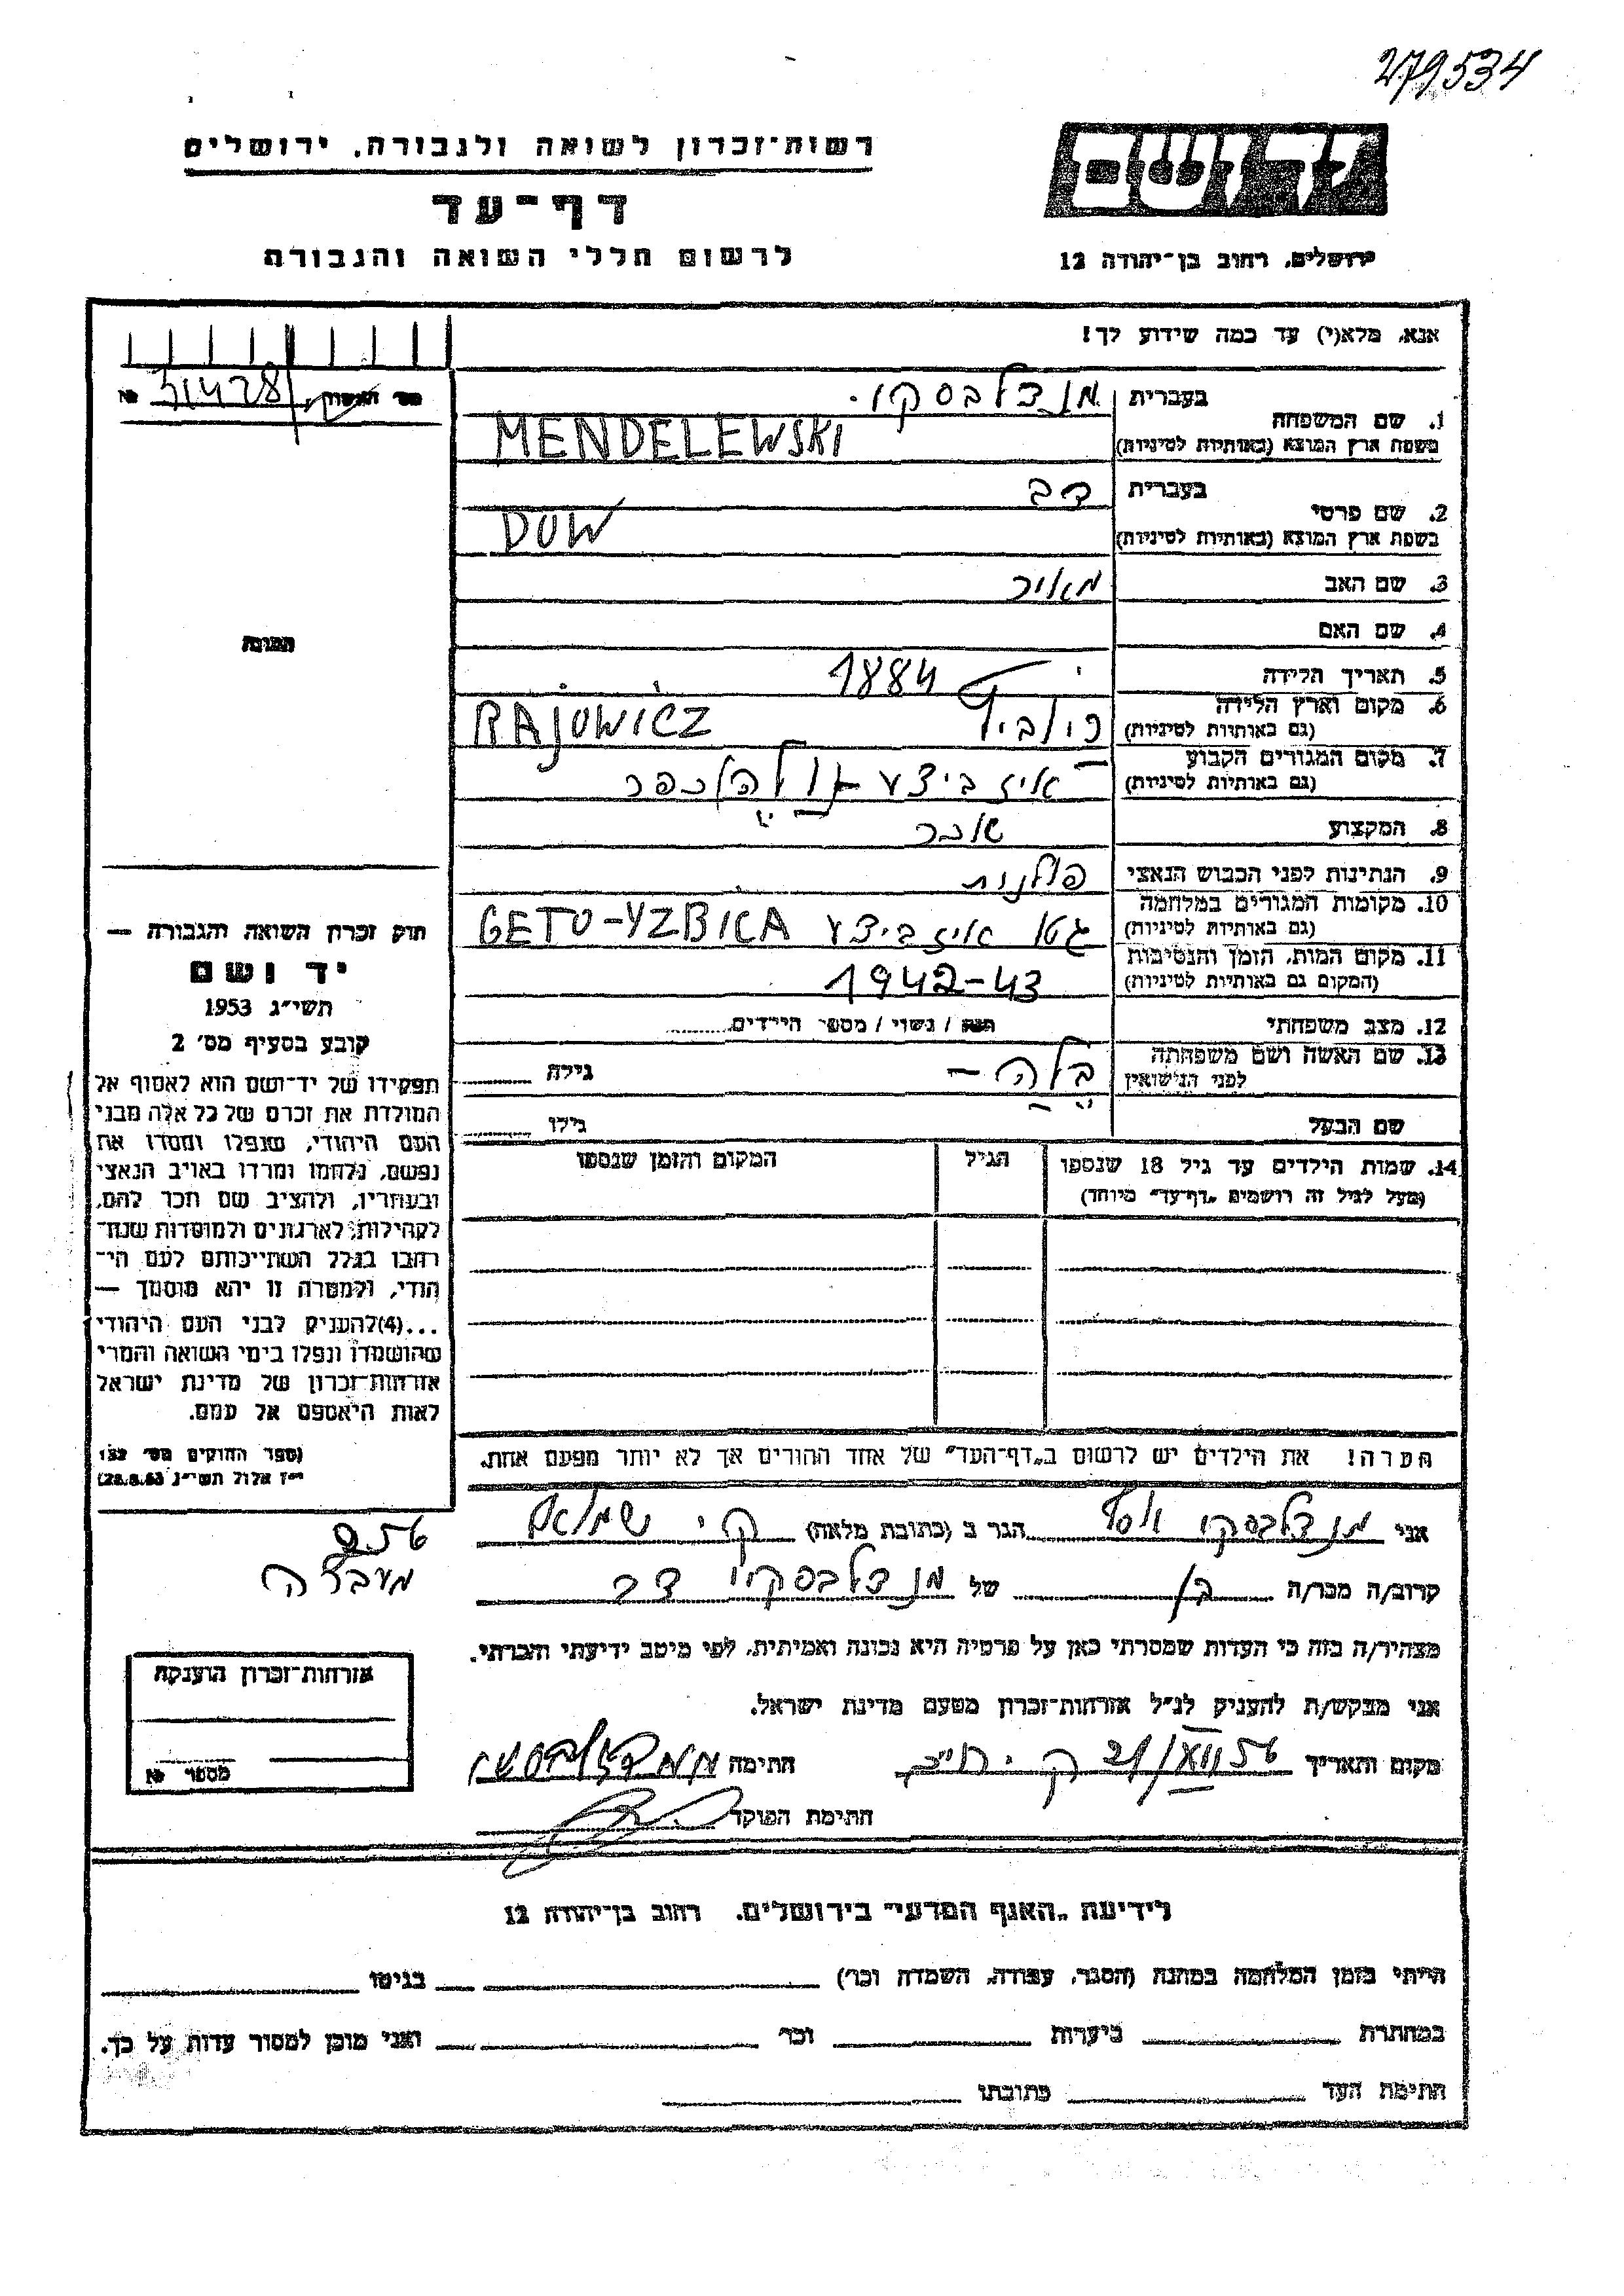 279534
רשות־זכרון לשואה ולגבורה, ירושלים
יד ושם
דף־עד
לרשום חללי השואה והגבורה
ירושלים, רחוב בן־יהודה 12
אנא, מלא(י) עד כמה שידוע לך!
31428
1. שם המשפחה
בעברית מנדלבסקי.
בשפת ארץ המוצא (באותיות לטיניות) MENDELEWSKI
2. שם פרטי
בעברית דב
בשפת ארץ המוצא (באותיות לטיניות) DOW
3. שם האב מאיר
4. שם האם
5. תאריך הלידה 1884
6. מקום וארץ הלידה
(גם באותיות לטיניות) RAJOWICZ
7. מקום המגורים הקבוע
(גם באותיות לטיניות) איזביצע
8. המקצוע
9. הנתינות לפני הכבוש הנאצי פולנית
10. מקומות המגורים במלחמה
(גם באותיות לטיניות) גטו איזביצע GETO-YZBICA
11. מקום המות, הזמן והנסיבות
(המקום גם באותיות לטיניות) 1942-43
12. מצב משפחתי רווק / נשוי / מספר הילדים
13. שם האשה ושם משפחתה
לפני הנישואין בלה - גילה
שם הבעל גילו
14. שמות הילדים עד גיל 18 שנספו הגיל המקום והזמן שנספו
(מעל לגיל זה רושמים „דף־עד" מיוחד)
הערה! את הילדים יש לרשום ב„דף־העד" של אחד ההורים אך לא יותר מפעם אחת.
תמונה
חוק זכרון השואה והגבורה —
יד ושם
תשי״ג 1953
קובע בסעיף מס׳ 2
תפקידו של יד־ושם הוא לאסוף אל
המולדת את זכרם של כל אלה מבני
העם היהודי, שנפלו ומסרו את
נפשם, נלחמו ומרדו באויב הנאצי
ובעוזריו, ולהציב שם וזכר להם,
לקהילות, לארגונים ולמוסדות שנח־
רבו בגלל השתייכותם לעם הי־
הודי, ולמטרה זו יהא מוסמך —
...(4) להעניק לבני העם היהודי
שהושמדו ונפלו בימי השואה והמרי
אזרחות־זכרון של מדינת ישראל
לאות היאספם אל עמם.
(ספר החוקים מס׳ 132
י״ז אלול תשי״ג 28.8.53)
956
מעברה
אני מנדלבסקי יוסף הגר ב (כתובת מלאה) ק׳ שמואל
קרוב/ה מכר/ה בן של מנדלבסקי דב
מצהיר/ה בזה כי העדות שמסרתי כאן על פרטיה היא נכונה ואמיתית, לפי מיטב ידיעתי והכרתי.
אני מבקש/ת להעניק לנ״ל אזרחות־זכרון מטעם מדינת ישראל.
מקום ותאריך 21/VIII 56 חתימה
חתימת הפוקד
אזרחות־זכרון הוענקה
מספר №
לידיעת „האגף המדעי" בירושלים, רחוב בן־יהודה 12
הייתי בזמן המלחמה במחנה (הסגר, עבודה, השמדה וכו׳) בגיטו
במחתרת ביערות וכו׳ ואני מוכן למסור עדות על כך.
חתימת העד כתובתו